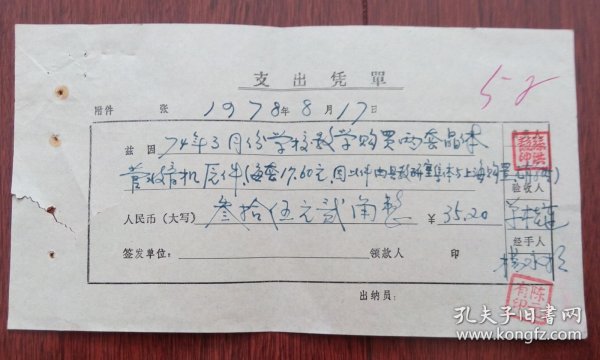 支出凭單
5-2
附件 张 1978年8月17日
兹因 74年3月份学校教学购买两套晶体
管收音机元件(每套17.60元,因此件由县教研室集体与上海购买
人民币(大写) 叁拾伍元贰角整 ¥35.20
验收人
经手人
签发单位: 领款人 印
出纳员:
孔夫子旧书网
www.kongfz.com